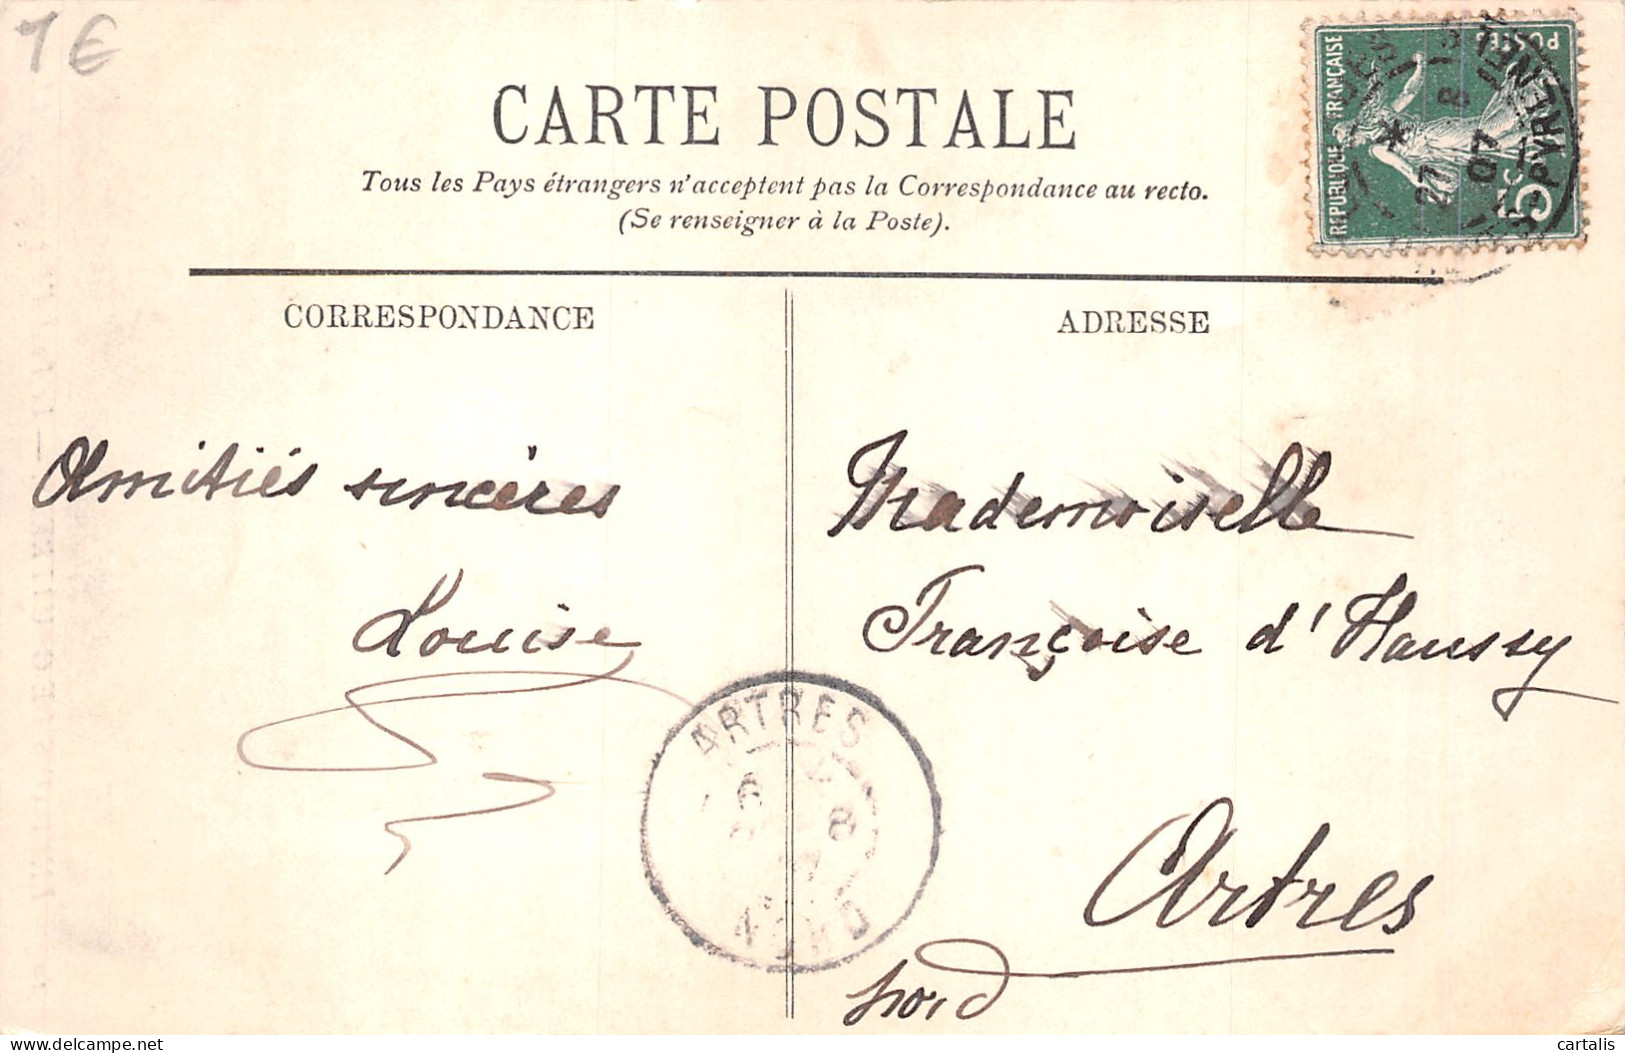 1€
CARTE POSTALE
Tous les Pays étrangers n'acceptent pas la Correspondance au recto.
(Se renseigner à la Poste).
RÉPUBLIQUE FRANÇAISE
POSTES
5c
27
8
07
CORRESPONDANCE
ADRESSE
Amitiés sincères
Louise
Mademoiselle
Françoise d'Haussy
Artres
nord
ARTRES
6
8
NORD
delcampe.net
cartalis